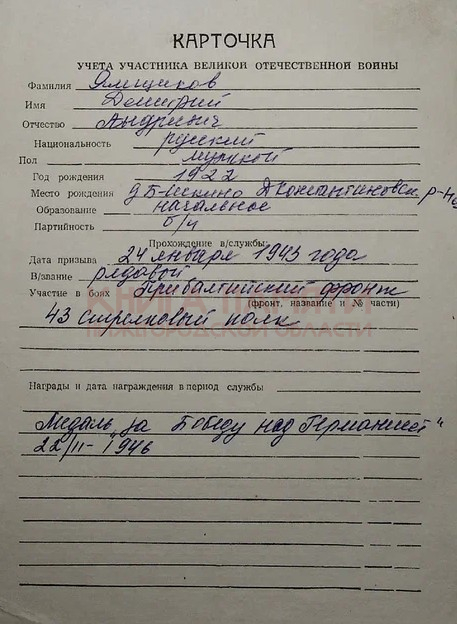 КАРТОЧКА
УЧЕТА УЧАСТНИКА ВЕЛИКОЙ ОТЕЧЕСТВЕННОЙ ВОЙНЫ
Фамилия Ямщиков
Имя Дмитрий
Отчество Андреевич
Национальность русский
Пол мужской
Год рождения 1922
Место рождения Д Константиновск. р-на
Образование начальное
Партийность б/п
Прохождение в/службы
Дата призыва 24 января 1943 года
В/звание рядовой
Участие в боях Прибалтийский фронт
(фронт, название и № части)
43 стрелковый полк
КНИГА ПАМЯТИ
НИЖЕГОРОДСКОЙ ОБЛАСТИ
Награды и дата награждения в период службы
Медаль „за Победу над Германией"
22/II-1946